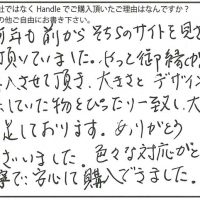 社ではなく Handle でご購入頂いたご理由はなんですか？
の他ご自由にお書き下さい。
前から そちらのサイトを見
頂いていました。やっと御縁が
入させて頂き、大きさと デザイン
していた物とぴったり一致し、大
足しております。ありがとう
ざいました。色々な対応がと
寧で安心して購入できました。